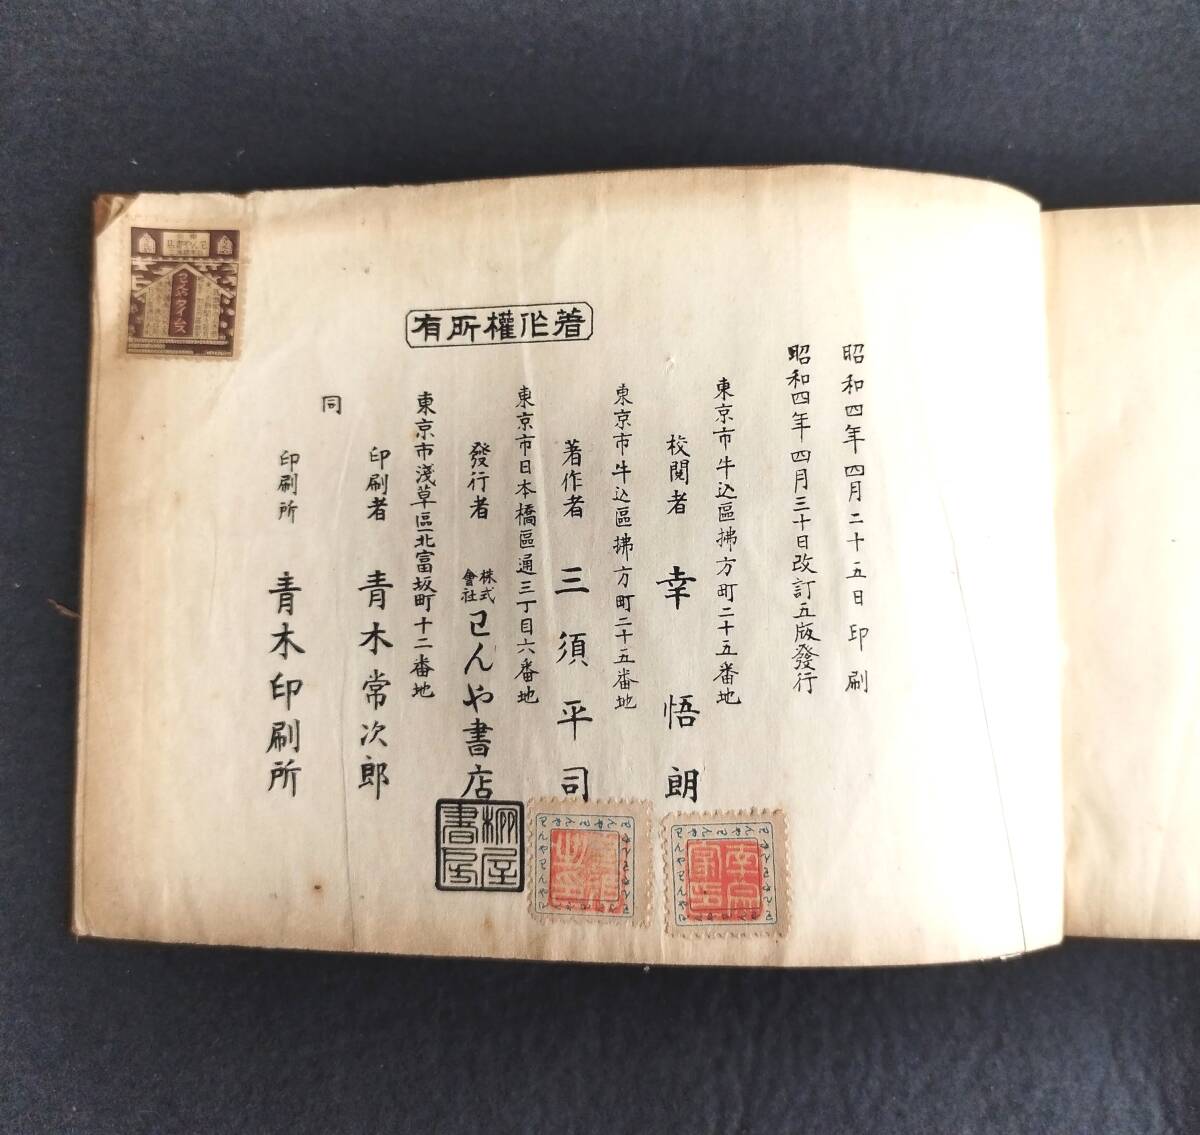 昭和四年四月二十五日印刷
昭和四年四月三十日改訂五版發行
著作權所有
東京市牛込區拂方町二十五番地
校閱者 幸悟朗
東京市牛込區拂方町二十五番地
著作者 三須平司
東京市日本橋區通三丁目六番地
發行者 株式會社 わんや書店
東京市淺草區北富坂町十二番地
印刷者 青木常次郎
同
印刷所 青木印刷所